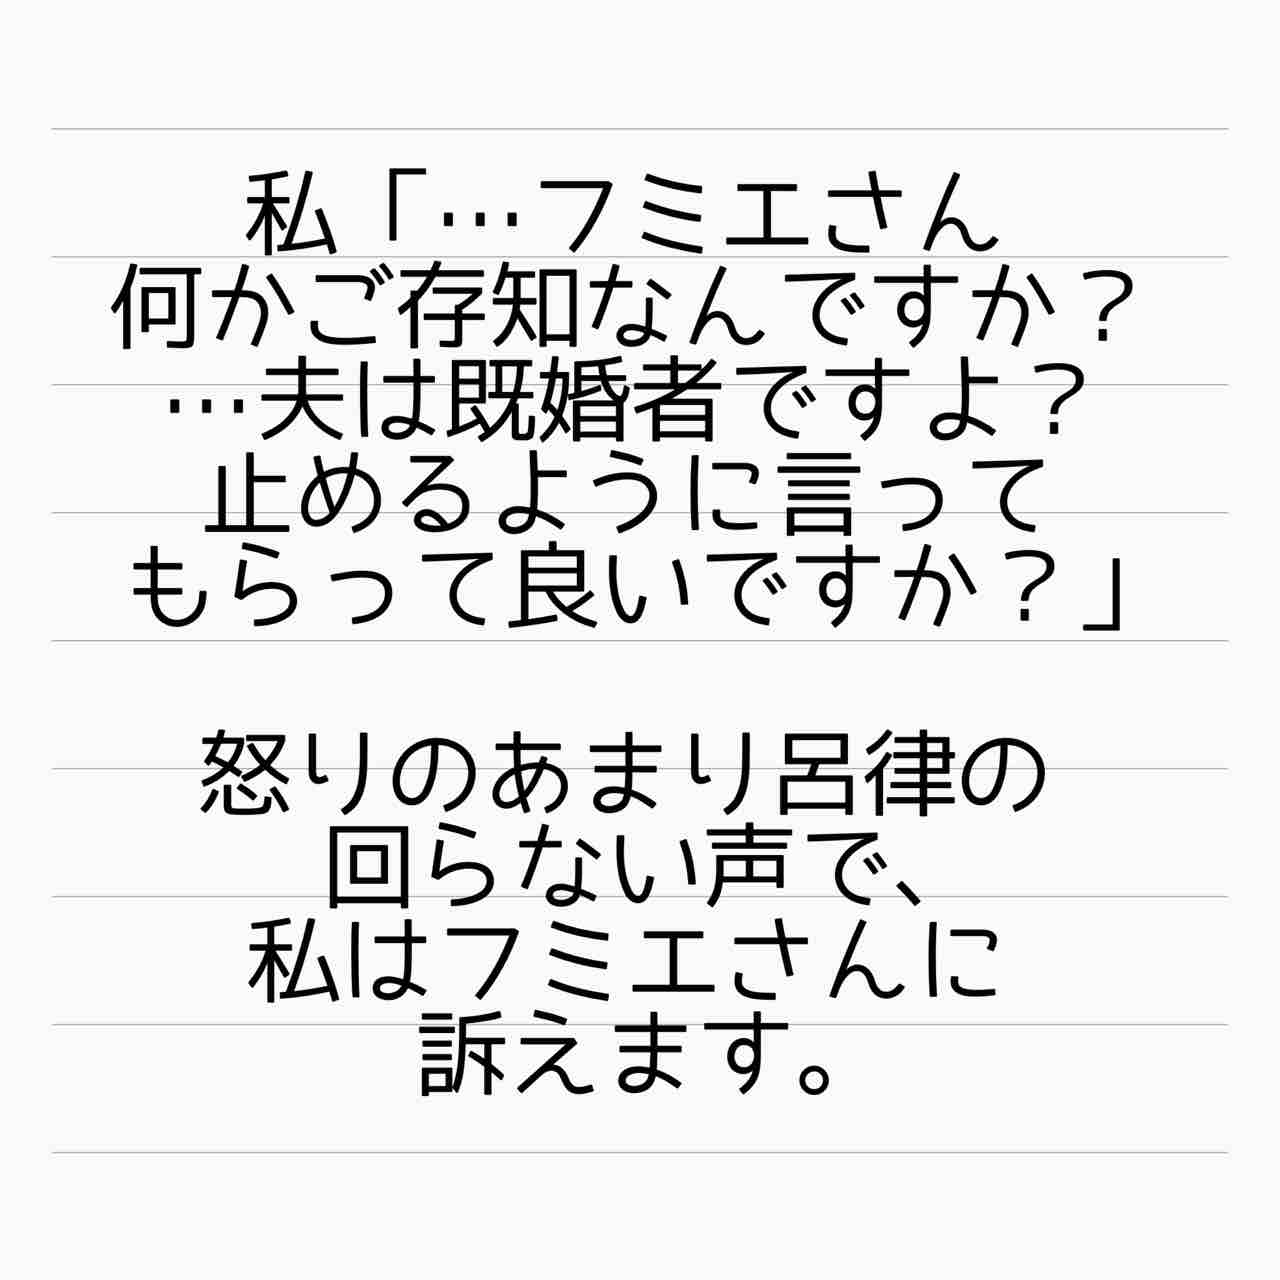 私「…フミエさん
何かご存知なんですか？
…夫は既婚者ですよ？
止めるように言って
もらって良いですか？」
怒りのあまり呂律の
回らない声で、
私はフミエさんに
訴えます。